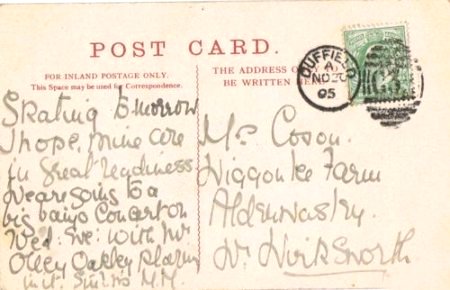 POST CARD.
FOR INLAND POSTAGE ONLY.
This Space may be used for Correspondence.
THE ADDRESS O
BE WRITTEN
DUFFIELD
A
NO 20
05
Skating tomorrow
I hope, mine are
in great readiness
We are going to a
big banjo Concert on
Wed: Eve: with Mr
Olley Oakley playing
in it.
Farm
Alderwasley
Nr Wirksworth